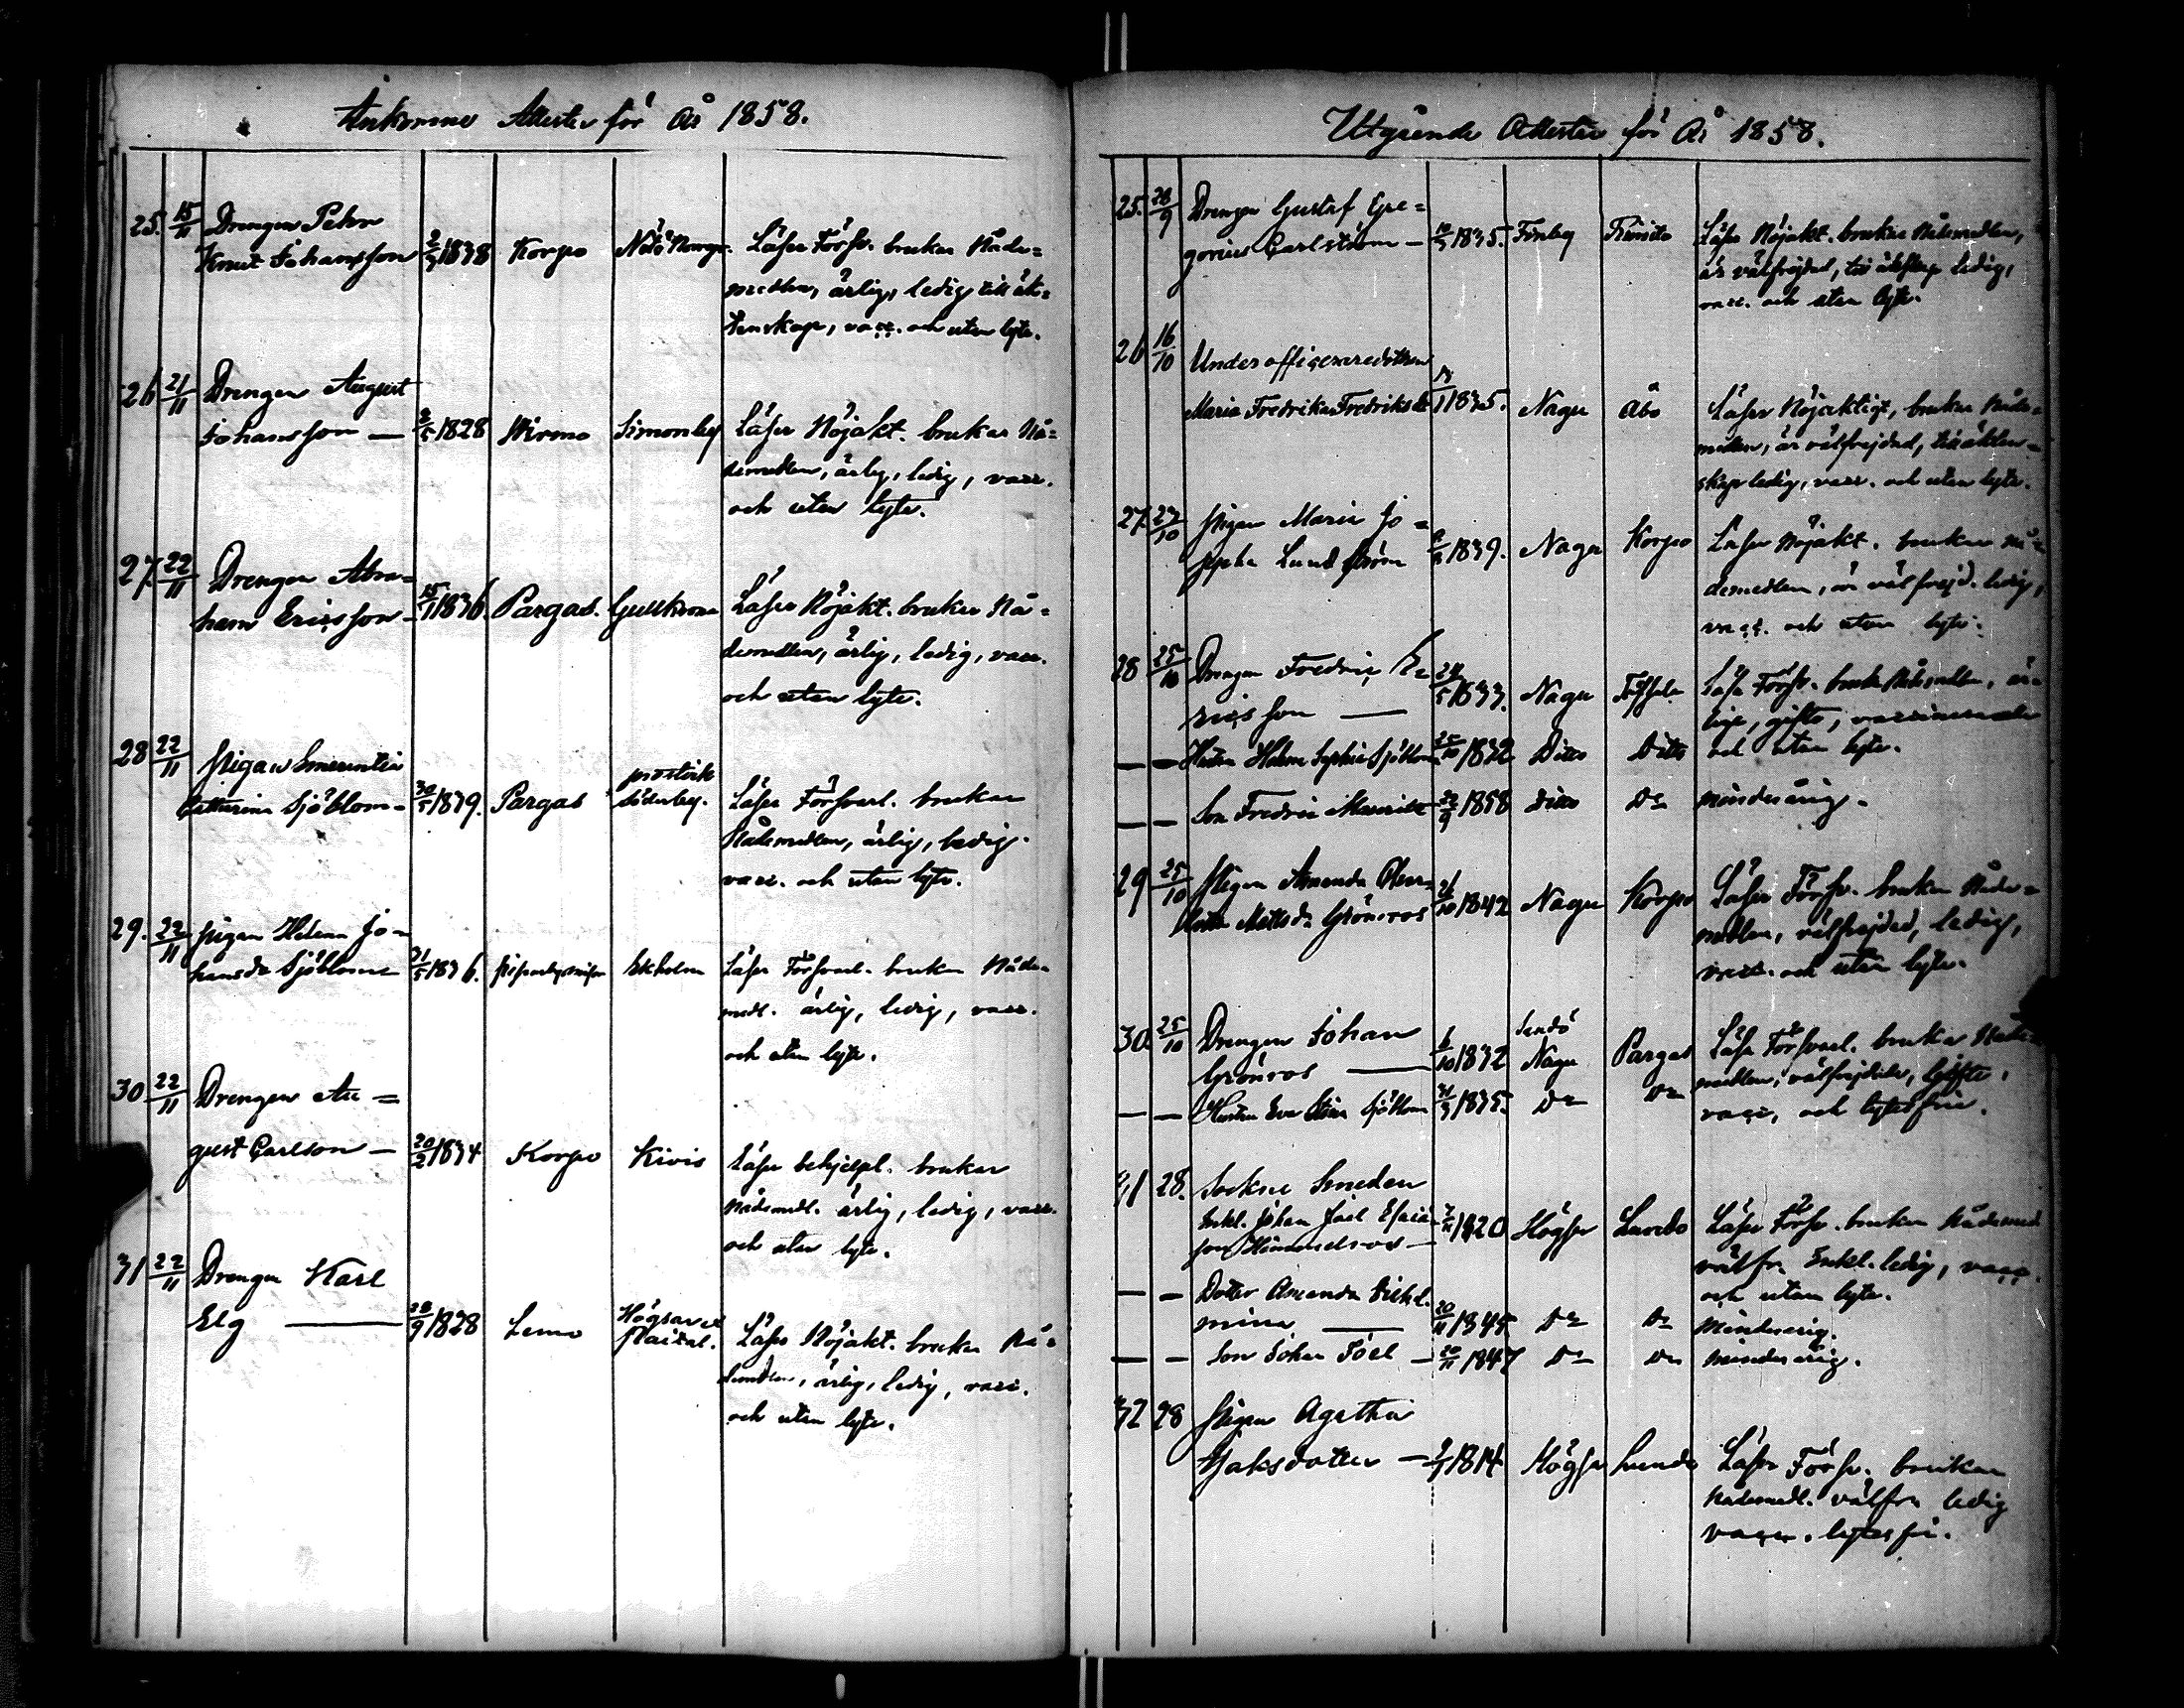 Ankomne Attester för År 1858.
25. 15/11 Drengen Pehr
Knut Johansson 2/9 1838 Korpo Nötö Läser Försv. brukar Nåde=
medlen, ärlig, ledig till äk=
tenskap, vacc. och utan lyte.
26 21/11 Drengen August
Johansson — 2/5 1828 Wirmo Simonby Läser Nöjakt. brukar Nå=
demedlen, ärlig, ledig, vacc.
och utan lyte.
27. 22/11 Drengen Abra=
ham Ericsson 15/11 1836. Pargas. Gullkrona Läser Nöjakt. brukar Nå=
demedlen, ärlig, ledig, vacc.
och utan lyte.
28 22/11 Pigan Smerentia
prostvik
Catharina Sjöblom 30/5 1839. Pargas Söderby. Läser Försvarl. brukar
Nådemedlen, ärlig, ledig.
vacc. och utan lyte.
29. 22/11 Pigan Helena Jo=
hansdr Sjöblom 31/5 1836. Ekholm Läser Försvarl. brukar Nåde=
medl. ärlig, ledig, vacc.
och utan lyte.
30 22/11 Drengen Au=
gust Carlson — 20/2 1834 Korpo Kivis Läser behjelpl. brukar
nådemedl. ärlig, ledig, vacc.
och utan lyte.
31 22/11 Drengen Karl
Elg — 28/9 1828 Lemo Högsar Läser Nöjakt. brukar Nå=
demedlen, ärlig, ledig, vacc.
och utan lyte.
Utgående Attester för År 1858.
25. 28/9 Drengen Gustaf Gre=
gorius Carlström — 1835. Finby Kimito Läser Nöjakt. brukar Nådemedlen,
är välfrejdad, till äktskap ledig,
vacc. och utan lyte.
26 16/10 Underofficersdottren
Maria Fredrika Fredriksdr 1835. Nagu Åbo Läser Nöjaktigt, brukar Nåde=
medlen, är välfrejdad, till äkten=
skap ledig, vacc. och utan lyte.
27. 23/10 Pigan Maria Jo=
sepha Lundström 1839. Nagu Korpo Läser Nöjakt. brukar Nå=
demedlen, är välfrejd. ledig,
vacc. och utan lyte.
28 25/10 Drengen Fredric He=
ricsson — 24/5 1833. Nagu Läser Försv. brukar Nådemedlen, är=
lige, gifte, vaccinerade
— — Hustrun Helena Sophia Sjöblom 25/10 1832 Ditto Ditto och utan lyte.
— — Son Fredric Mauritz 22/9 1858 Ditto Do minderårig.
29 25/10 Pigan Amanda
Matsdr Grönroos 21/10 1842 Nagu Korpo Läser Försv. brukar Nåde=
medlen, välfrejdad, ledig,
vacc. och utan lyte.
30. 25/10 Drengen Johan Sandö
Grönros — 6/10 1832 Nagu Pargas Läser Försvarl. brukar Nåde=
medlen, välfrejdade, gifte,
— — Hustrun Eva Stina Sjöblom 1835. Do Do vacc, och lytesfrie.
31 28. Sockne Smeden
Enkl. Johan Joel Esaias
son Himmelroos — 1820 Högsar Lundo Läser Försv. brukar Nådemed.
välfr. Enkl. ledig, vacc.
och utan lyte.
— — Dotter Amanda Vilhel=
mina — 20/11 1845 Do Do Minderårig.
— — Son Johan Joel — 20/11 1847 Do Do minderårig.
32 28 Pigan Agatha
Isaksdotter — 1814 Högsar Lundo Läser Försv. brukar
nådemedl. välfr. ledig
vacc. lytesfri.